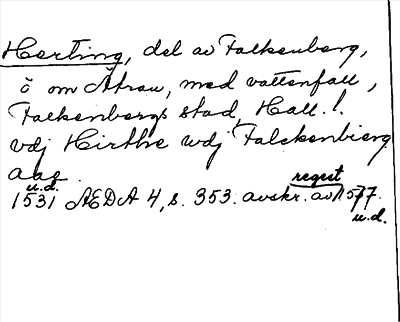 Herting, del av Falkenberg,
ö om Ätran, med vattenfall,
Falkenbergs stad, Hall. l.
vdj Hirthe wdj Falckenbierg
aag.
u.d.
regest
1531 ÆDA 4, s. 353. avskr. av 1577.
u.d.